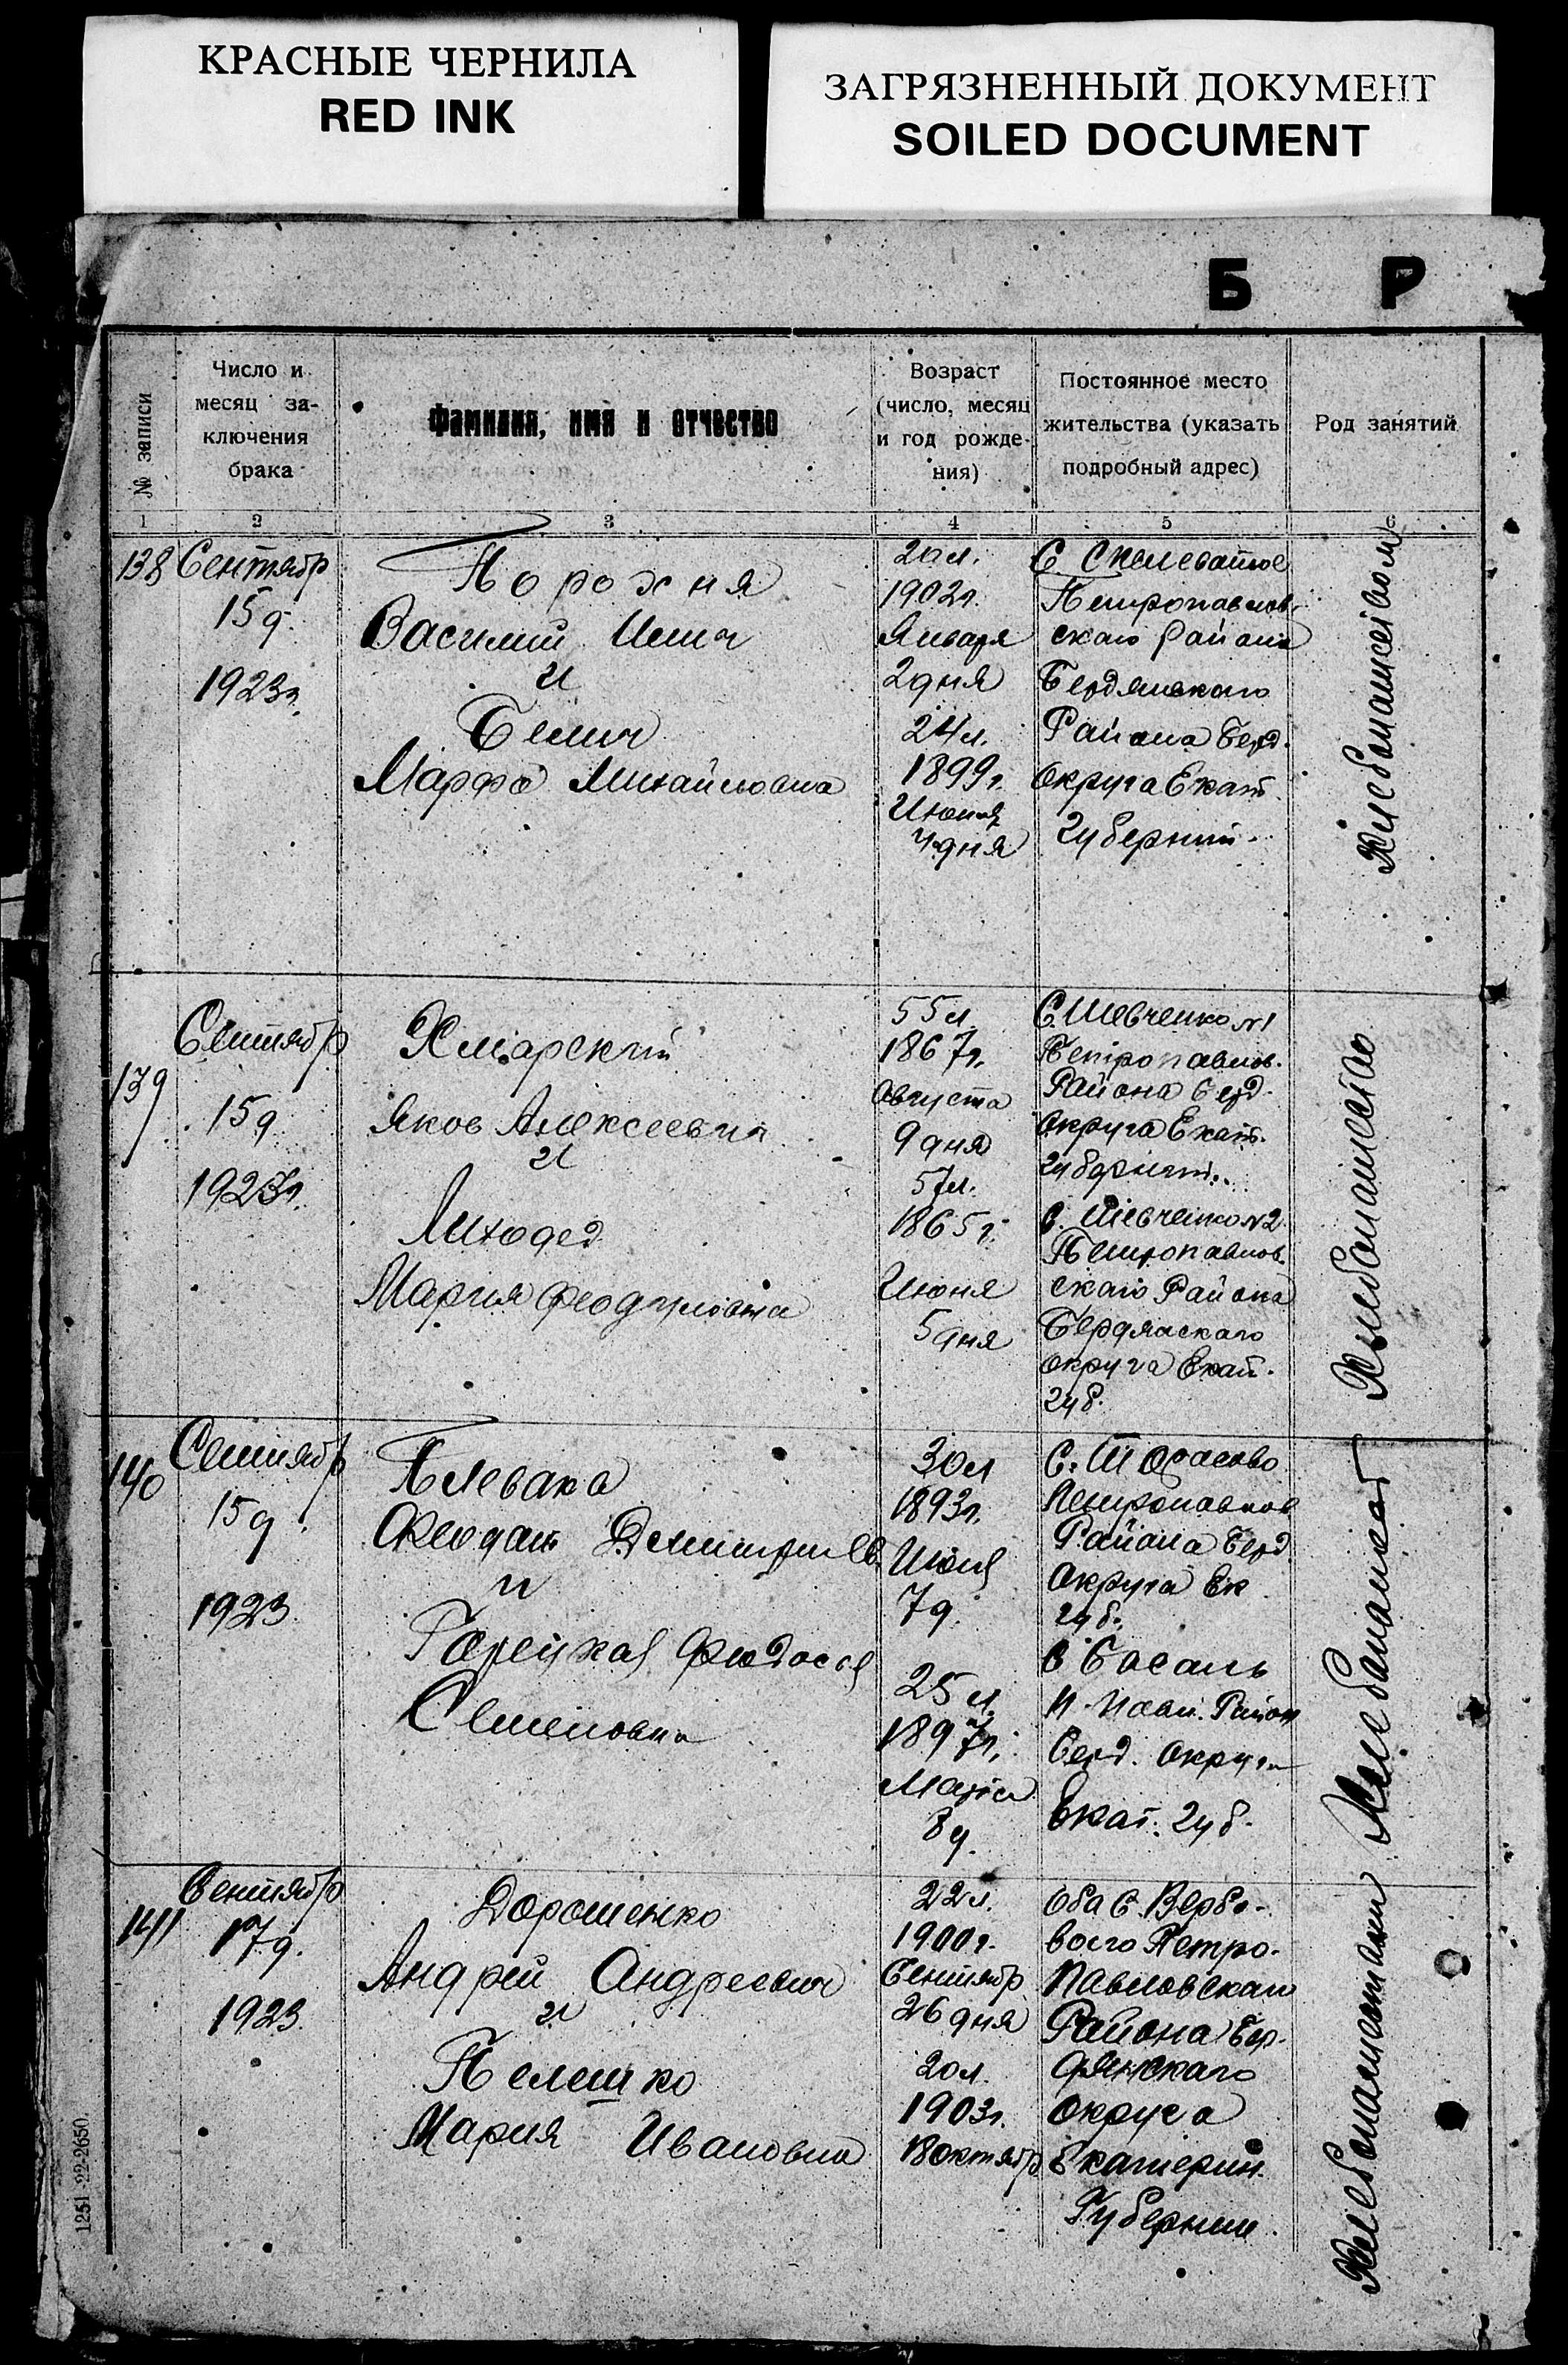 КРАСНЫЕ ЧЕРНИЛА
RED INK
ЗАГРЯЗНЕННЫЙ ДОКУМЕНТ
SOILED DOCUMENT
Б Р
№ записи
Число и
месяц за-
ключения
брака
Фамилия, имя и отчество
Возраст
(число, месяц
и год рожде-
ния)
Постоянное место
жительства (указать
подробный адрес)
Род занятий
1 2 3 4 5 6
138
Сентябр
15д.
1923г.
Порохня
Василий
и
Марфа Михайловна
20л.
1902г.
Января
2дня
24л.
1899г.
Июня
4дня
С
Петропавлов-
скаго Района
Бердянского
Района Берд.
Округа Екат.
Губернии.
Хлебопашеством
139
Сентябр
15д
1923г.
Хмарский
Яков Алексеевич
и
Лиходед
Мария Феодуловна
55л.
1867г.
Августа
9дня
57л.
1865г.
Июня
5дня
С. Шевченко №1
Петропавлов.
Района Берд.
Округа Екат.
Губернии.
С. Шевченко №2
Петропавлов.
скаго Района
Бердянскаго
округа Екат.
губ.
Хлебопашество
140
Сентябр
15д.
1923
Плевака
и
Семеновна
30л
1893г.
7д.
25л.
1897г.
Марта
8д.
С. Тарасово
Петропавлов
Района Берд
Округа Ек
губ.
С Басань
Район
Берд. Округа
Екат. губ.
141
Сентябр
17д.
1923.
Дорошенко
Андрей Андреевич
и
Пелешко
Мария Ивановна
22л.
1900г.
Сентябр
26дня
20л.
1903г.
18октябр.
Оба С. Вербо-
вого Петро-
Павловскаго
Района Бер-
дянскаго
Округа
Екатерин.
Губернии.
1251-22-2650.